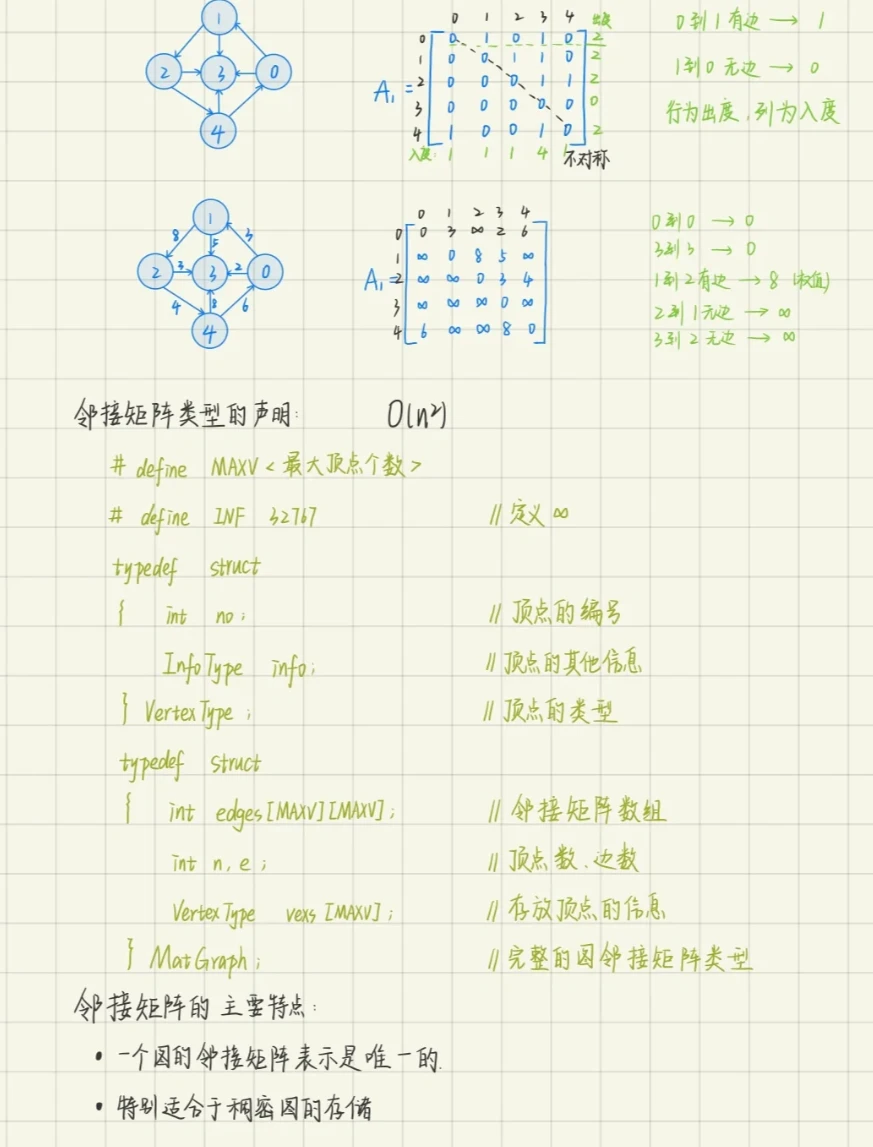 0 1 2 3 4 出度
0 0 1 0 1 0 2
1 0 0 1 1 0 2
A₁ = 2 0 0 0 1 1 2
3 0 0 0 0 0 0
4 1 0 0 1 0 2
入度: 1 1 1 4 1 不对称
0到1有边 → 1
1到0无边 → 0
行为出度,列为入度
1
2 3 0
4
0 1 2 3 4
0 0 3 ∞ 2 6
1 ∞ 0 8 5 ∞
A₁ = 2 ∞ ∞ 0 3 4
3 ∞ ∞ ∞ 0 ∞
4 6 ∞ ∞ 8 0
0到0 → 0
3到3 → 0
1到2有边 → 8 (权值)
2到1无边 → ∞
3到2无边 → ∞
1
8 5 3
2 3 3 2 0
4 8 6
4
邻接矩阵类型的声明: O(n²)
# define MAXV <最大顶点个数>
# define INF 32767 //定义∞
typedef struct
{ int no; //顶点的编号
InfoType info; //顶点的其他信息
} VertexType; //顶点的类型
typedef struct
{ int edges[MAXV][MAXV]; //邻接矩阵数组
int n,e; //顶点数、边数
VertexType vexs[MAXV]; //存放顶点的信息
} MatGraph; //完整的图邻接矩阵类型
邻接矩阵的主要特点:
• 一个图的邻接矩阵表示是唯一的.
• 特别适合于稠密图的存储